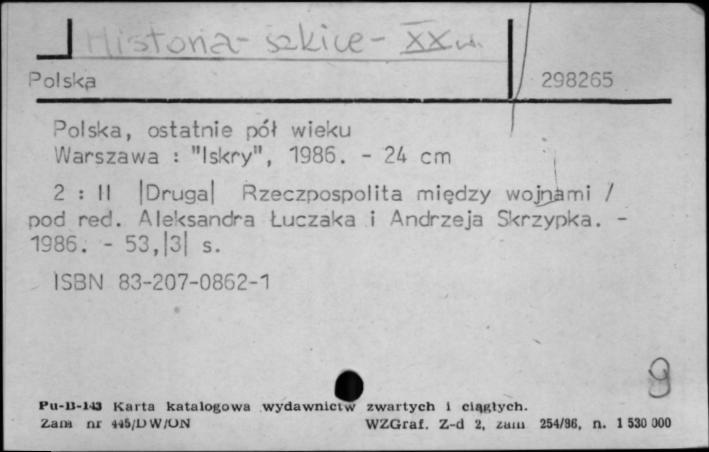 Historia - szkice - XX w.
Polska 298265
Polska, ostatnie pół wieku
Warszawa : "Iskry", 1986. - 24 cm
2 : II |Druga| Rzeczpospolita między wojnami /
pod red. Aleksandra Łuczaka i Andrzeja Skrzypka. -
1986. - 53,|3| s.
ISBN 83-207-0862-1
9
Pu-B-143 Karta katalogowa wydawnictw zwartych i ciągłych.
Zam nr 445/DW/ON WZGraf. Z-d 2, zam 254/86, n. 1 530 000